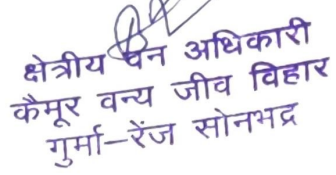 क्षेत्रीय वन अधिकारी
कैमूर वन्य जीव विहार
गुर्मा-रेंज सोनभद्र